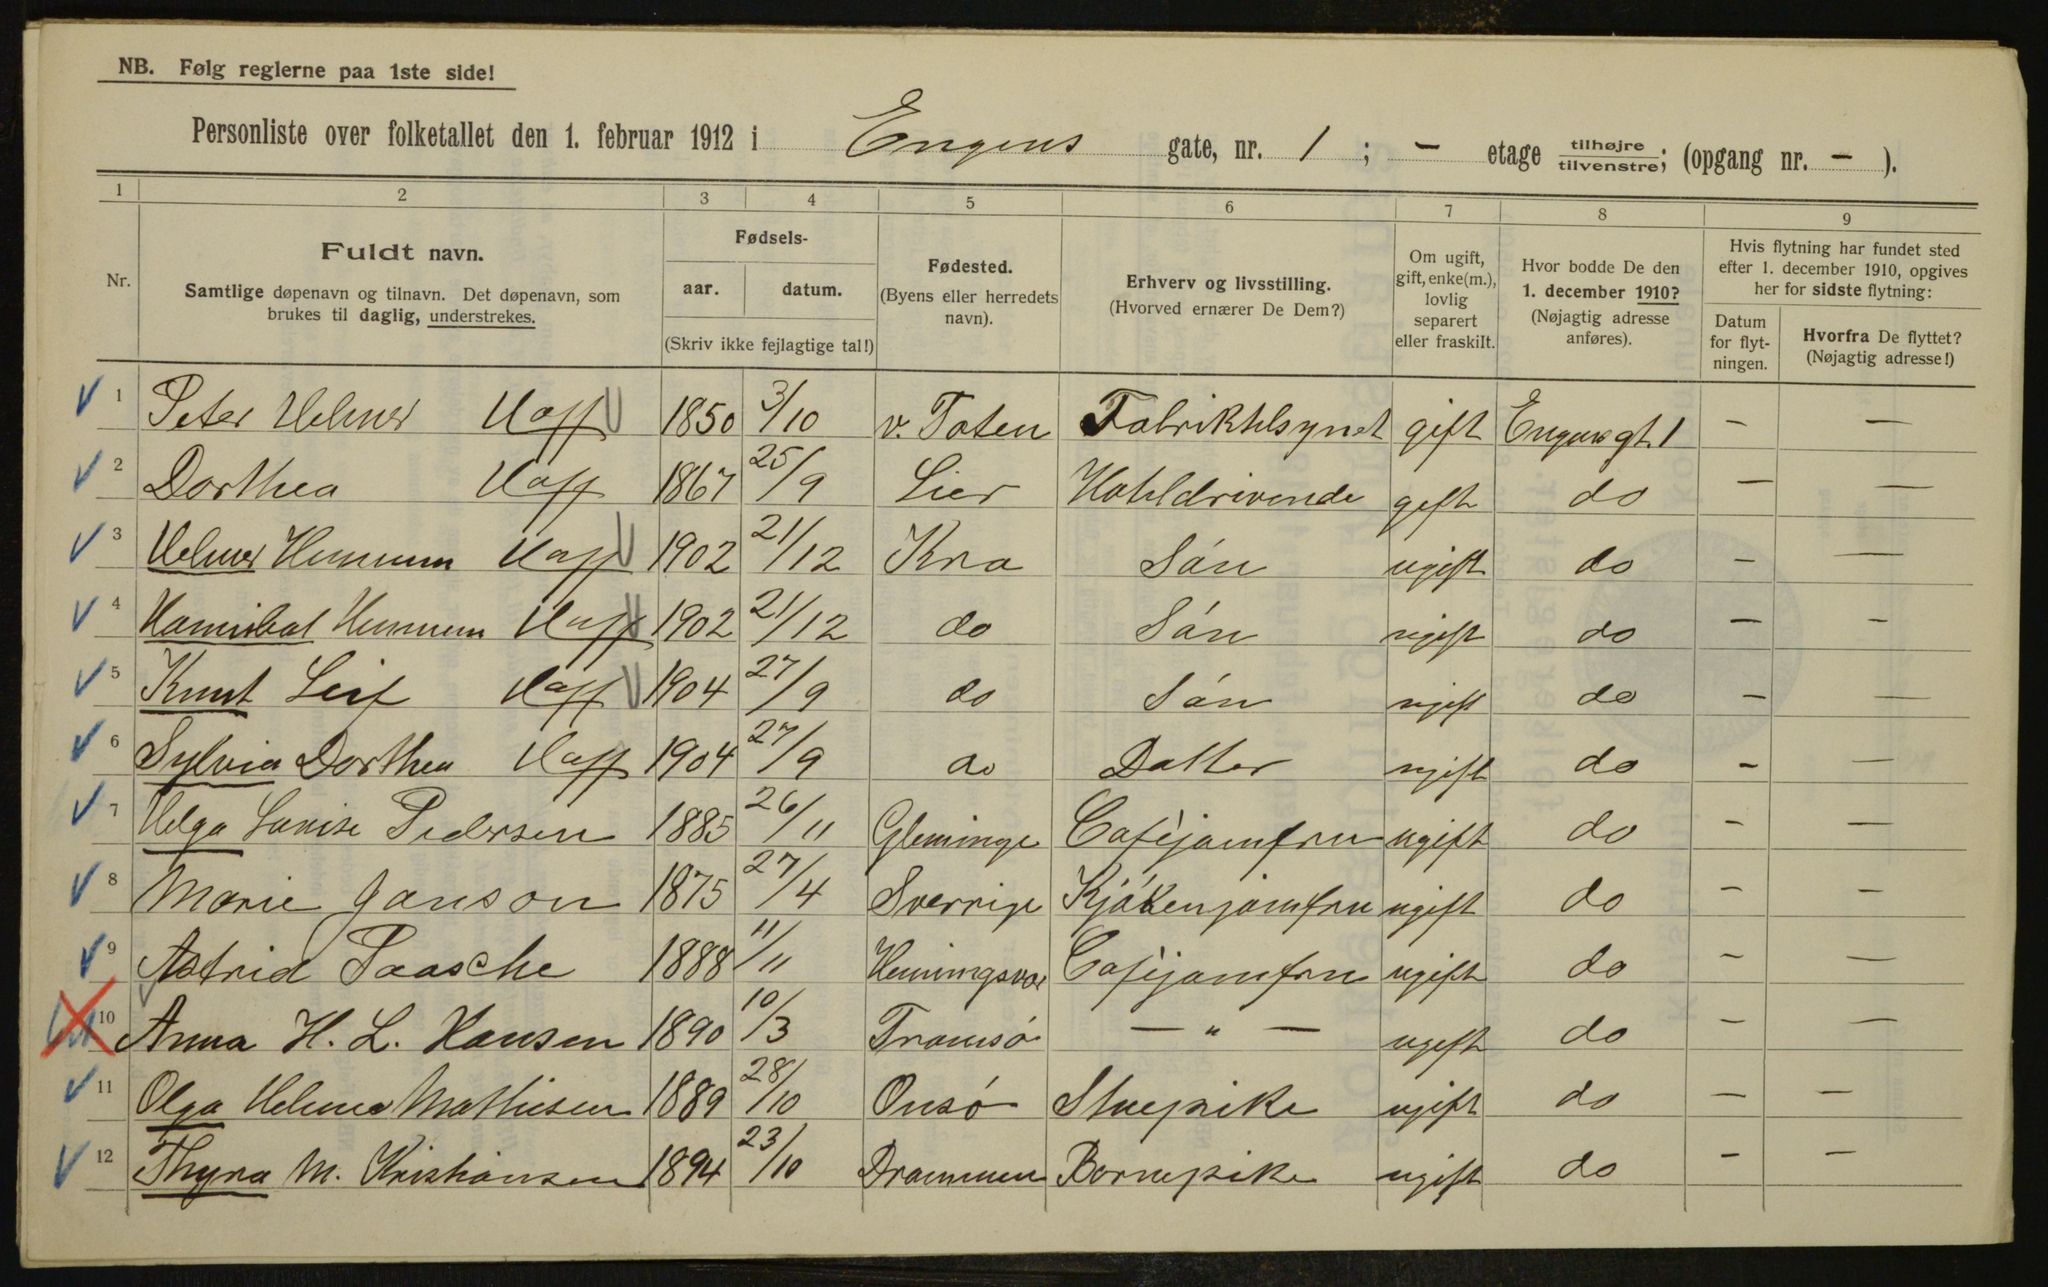 NB. Følg reglerne paa 1ste side!
Personliste over folketallet den 1. februar 1912 i Engens gate, nr. 1; – etage tilhøjre/tilvenstre; (opgang nr. – ).
1 2 3 4 5 6 7 8 9
Nr.
Fuldt navn.
Samtlige døpenavn og tilnavn. Det døpenavn, som
brukes til daglig, understrekes.
Fødsels-
aar. datum.
(Skriv ikke fejlagtige tal!)
Fødested.
(Byens eller herredets
navn).
Erhverv og livsstilling.
(Hvorved ernærer De Dem?)
Om ugift,
gift, enke(m.),
lovlig
separert
eller fraskilt.
Hvor bodde De den
1. december 1910?
(Nøjagtig adresse
anføres).
Hvis flytning har fundet sted
efter 1. december 1910, opgives
her for sidste flytning:
Datum
for flyt-
ningen.
Hvorfra De flyttet?
(Nøjagtig adresse!)
1 Peter Helmer Haff 1850 3/10 v. Toten Fabriktilsynet gift Engensgt. 1 – –
2 Dorthea Haff 1867 25/9 Lier Hoteldrivende gift do – –
3 Helmer Hennum Haff 1902 21/12 Kra Són ugift do – –
4 Hannibal Hennum Haff 1902 21/12 do Són ugift do – –
5 Knut Leif Haff 1904 27/9 do Són ugift do – –
6 Sylvia Dorthea Haff 1904 27/9 do Datter ugift do – –
7 Helga Lovise Pedersen 1885 26/11 Gleminge Caféjomfru ugift do – –
8 Marie Janson 1875 27/4 Sverrige Kjókkenjomfru ugift do – –
9 Astrid Paasche 1888 11/11 Henningsvær Caféjomfru ugift do – –
10 Anna H. L. Hansen 1890 10/3 Tromsó – " – ugift do – –
11 Olga Helene Mathiesen 1889 28/10 Onsó Stuepike ugift do – –
12 Thyra M. Kristiansen 1894 23/10 Drammen Barnepike ugift do – –